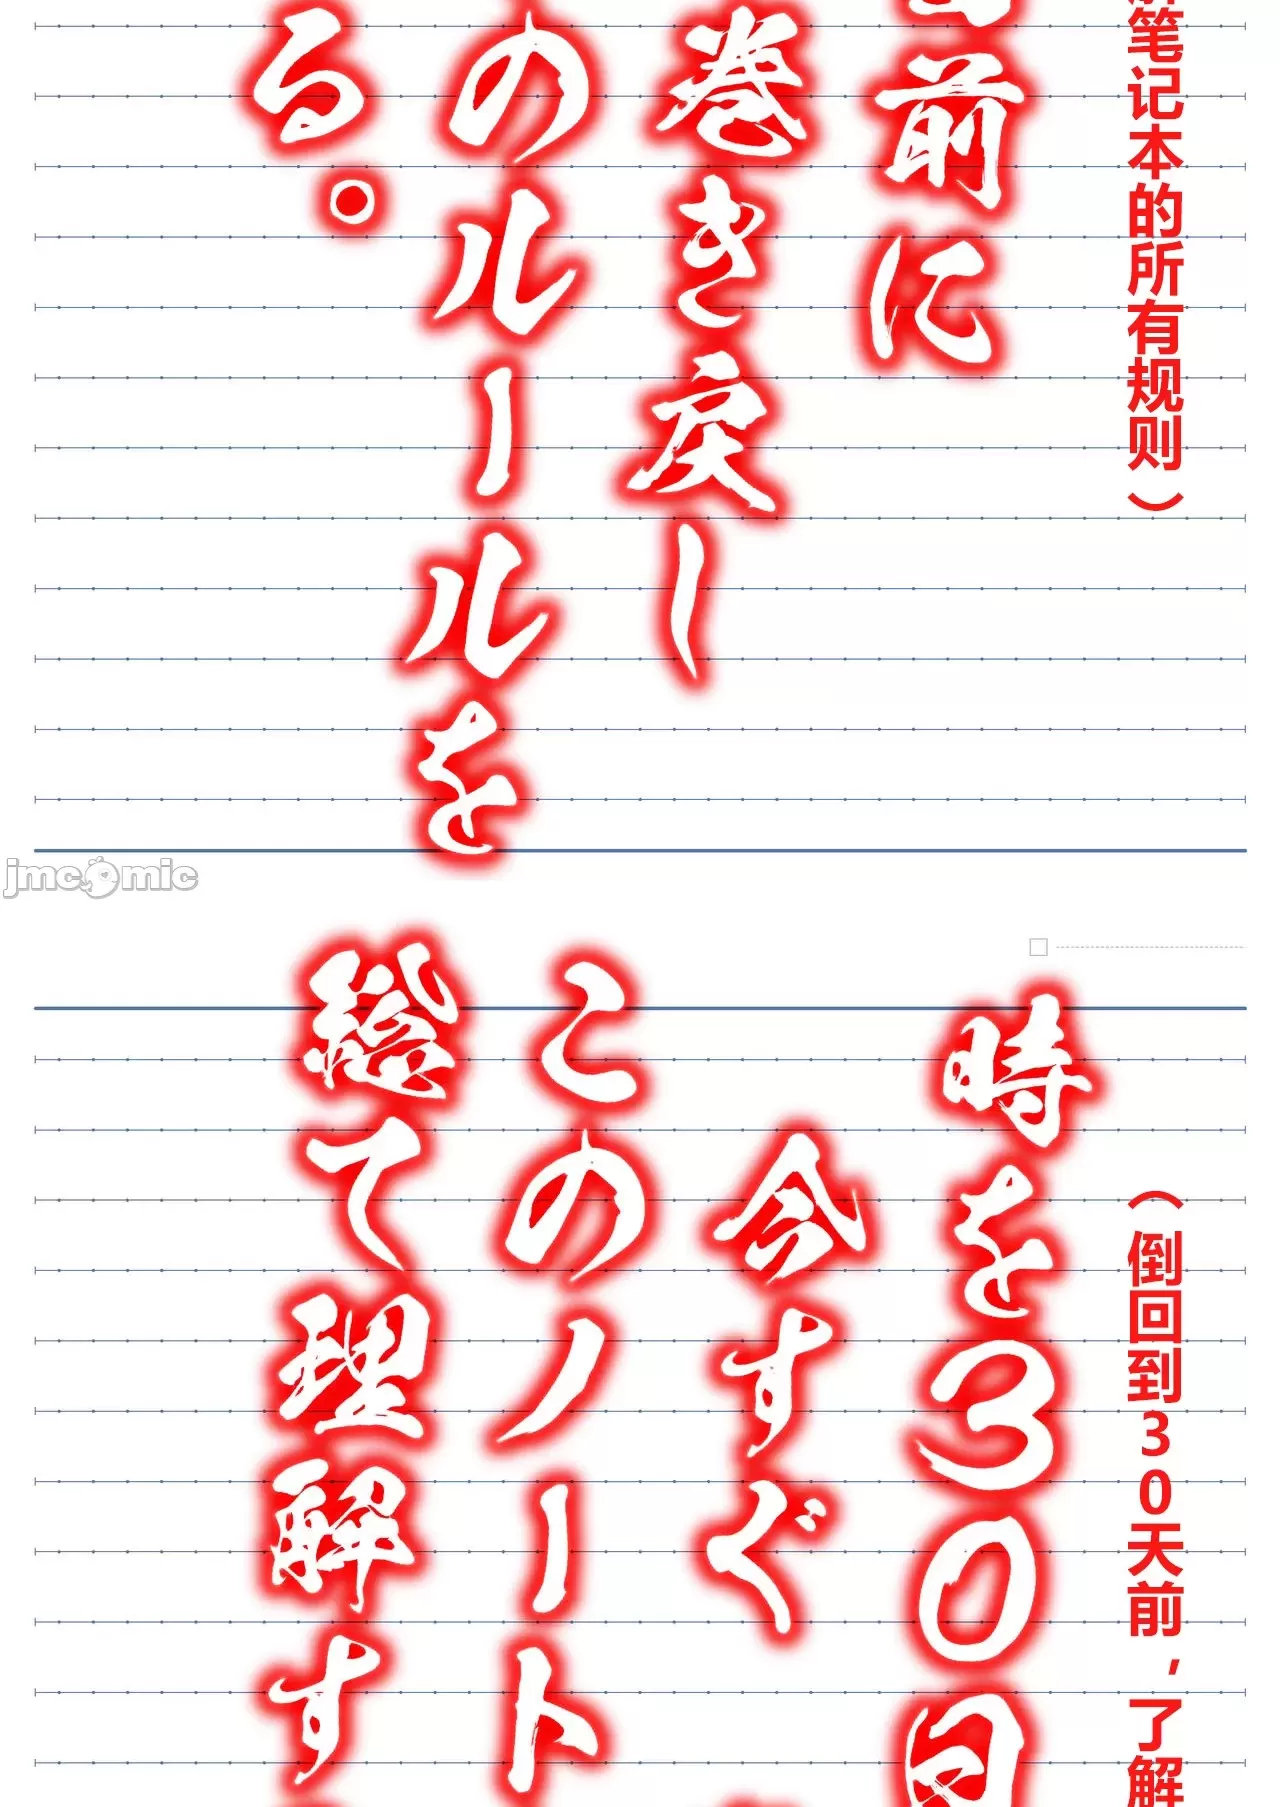 解笔记本的所有规则）
前に
巻き戻し
のルールを
る。
jmcomic
（倒回到30天前，了解
時を30日
今すぐ
このノート
総て理解す